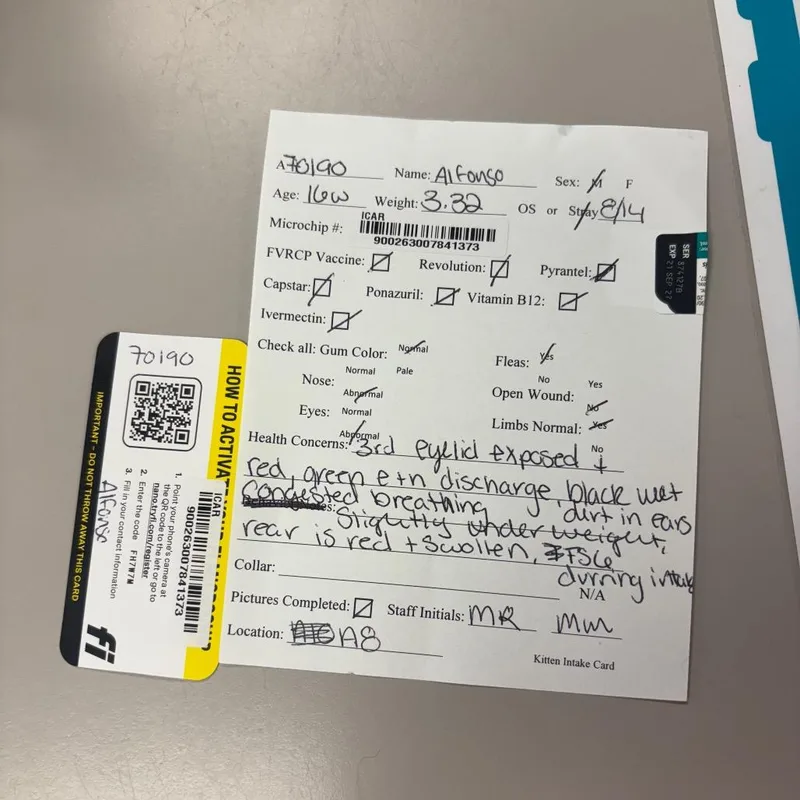 A70190 Name: Alfonso Sex: M F
Age: 16w Weight: 3.32 OS or Stray 8/14
Microchip #: ICAR
900263007841373
FVRCP Vaccine: Revolution: Pyrantel:
Capstar: Ponazuril: Vitamin B12:
Ivermectin:
Check all: Gum Color: Normal Fleas: Yes
Pale No
Nose: Normal Open Wound: Yes
Abnormal No
Eyes: Normal Limbs Normal: Yes
Abnormal No
Health Concerns: 3rd eyelid exposed +
red, green e+n discharge, black wet
congested breathing dirt in ears
Slightly under weight,
rear is red + swollen, FS6
durring intake
Collar: N/A
Pictures Completed: Staff Initials: MR MM
Location: A8
Kitten Intake Card
SER 874127B
EXP 21 SEP 27
70190
HOW TO ACTIVATE YOUR
1. Point your phone's camera at
the QR code to the left or go to
nano.tryfi.com/register
2. Enter the code FH7W7M
3. Fill in your contact information
ICAR
900263007841373
IMPORTANT - DO NOT THROW AWAY THIS CARD
Alfonso
fi